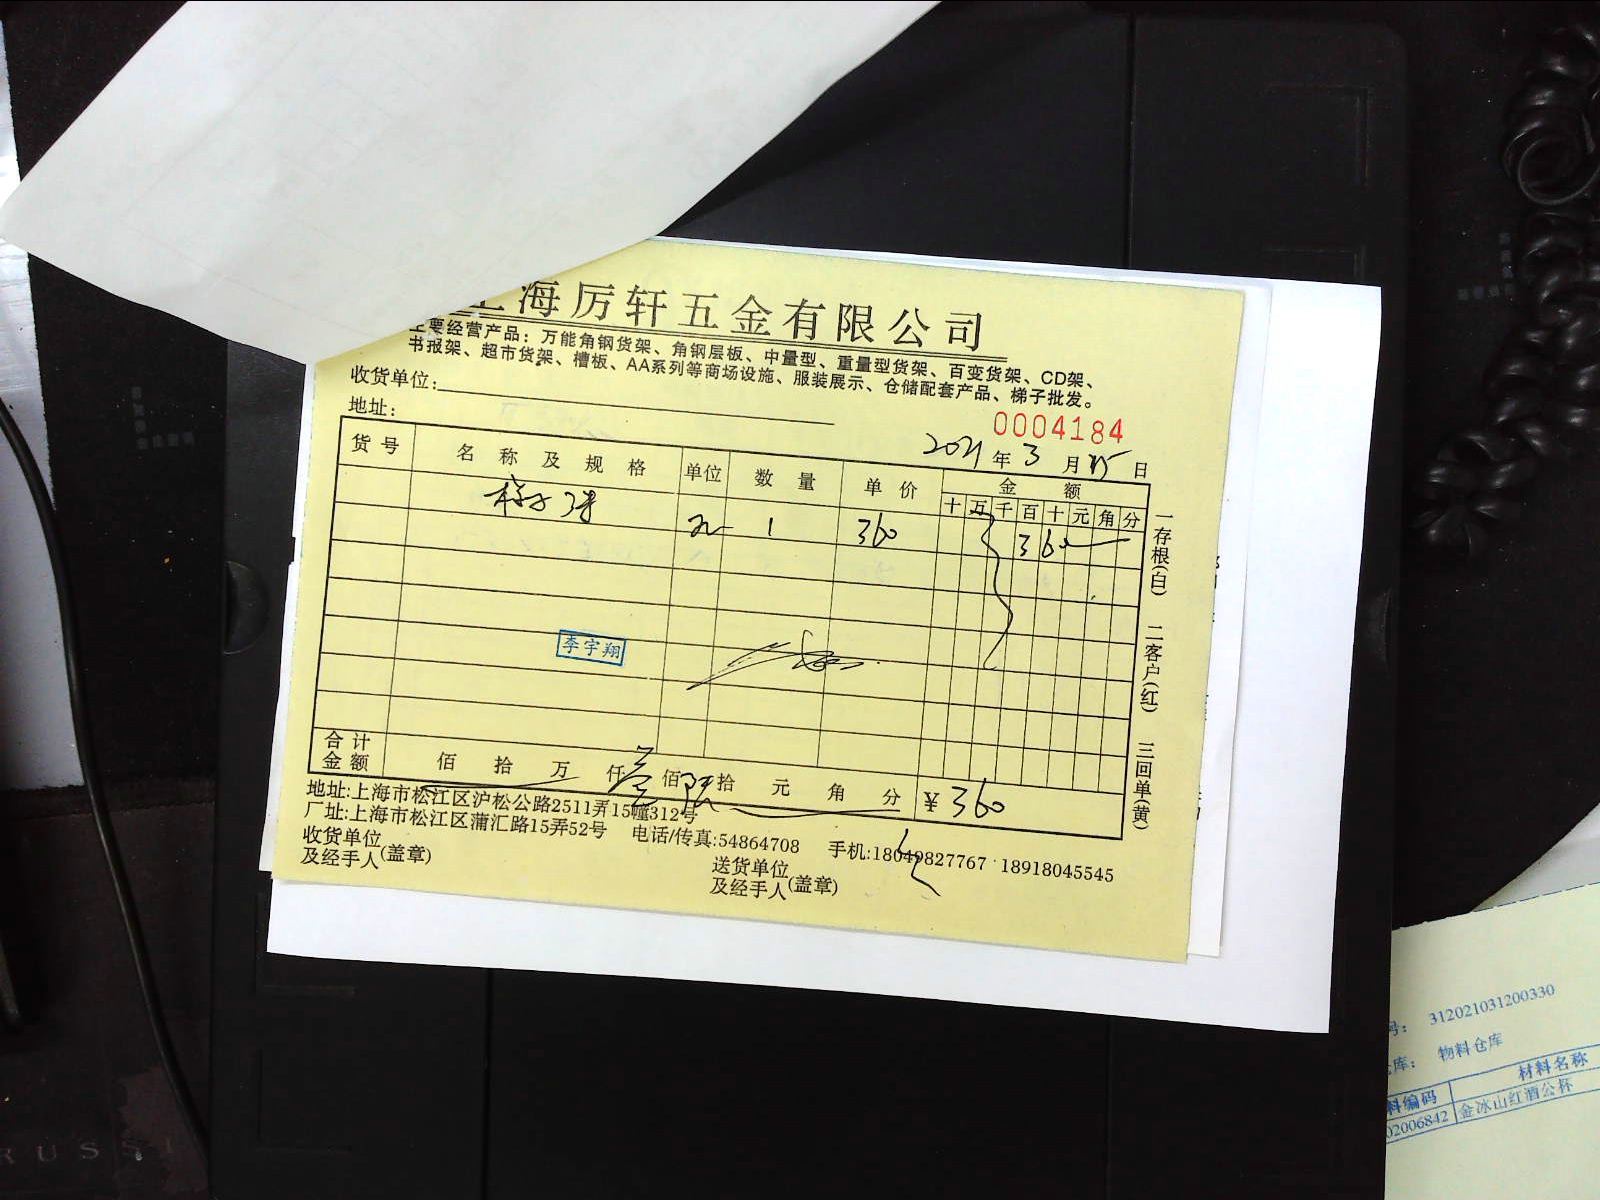 上海厉轩五金有限公司
主要经营产品：万能角钢货架、角钢层板、中量型、重量型货架、百变货架、CD架、
书报架、超市货架、槽板、AA系列等商场设施、服装展示、仓储配套产品、梯子批发。
收货单位：
地址：
0004184
2021年3月15日
货号 名称及规格 单位 数量 单价 金额
十万千百十元角分
梯子 1 360 360
李宇翔
合计金额 佰拾万仟叁佰陆拾元角分 ¥360
地址:上海市松江区沪松公路2511弄15幢312号
厂址:上海市松江区蒲汇路15弄52号 电话/传真:54864708 手机:18049827767 18918045545
收货单位及经手人(盖章) 送货单位及经手人(盖章)
一存根(白) 二客户(红) 三回单(黄)
号： 312021031200330
库： 物料仓库
料编码 材料名称
02006842 金冰山红酒公杯
RUSS